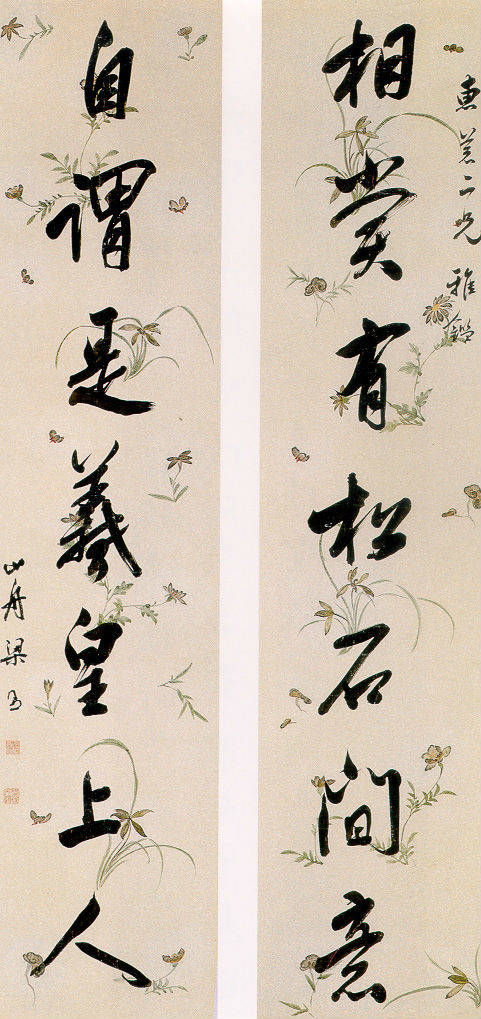 惠荖二兄雅鑑
相赏有松石間意
自謂是羲皇上人
山舟梁同